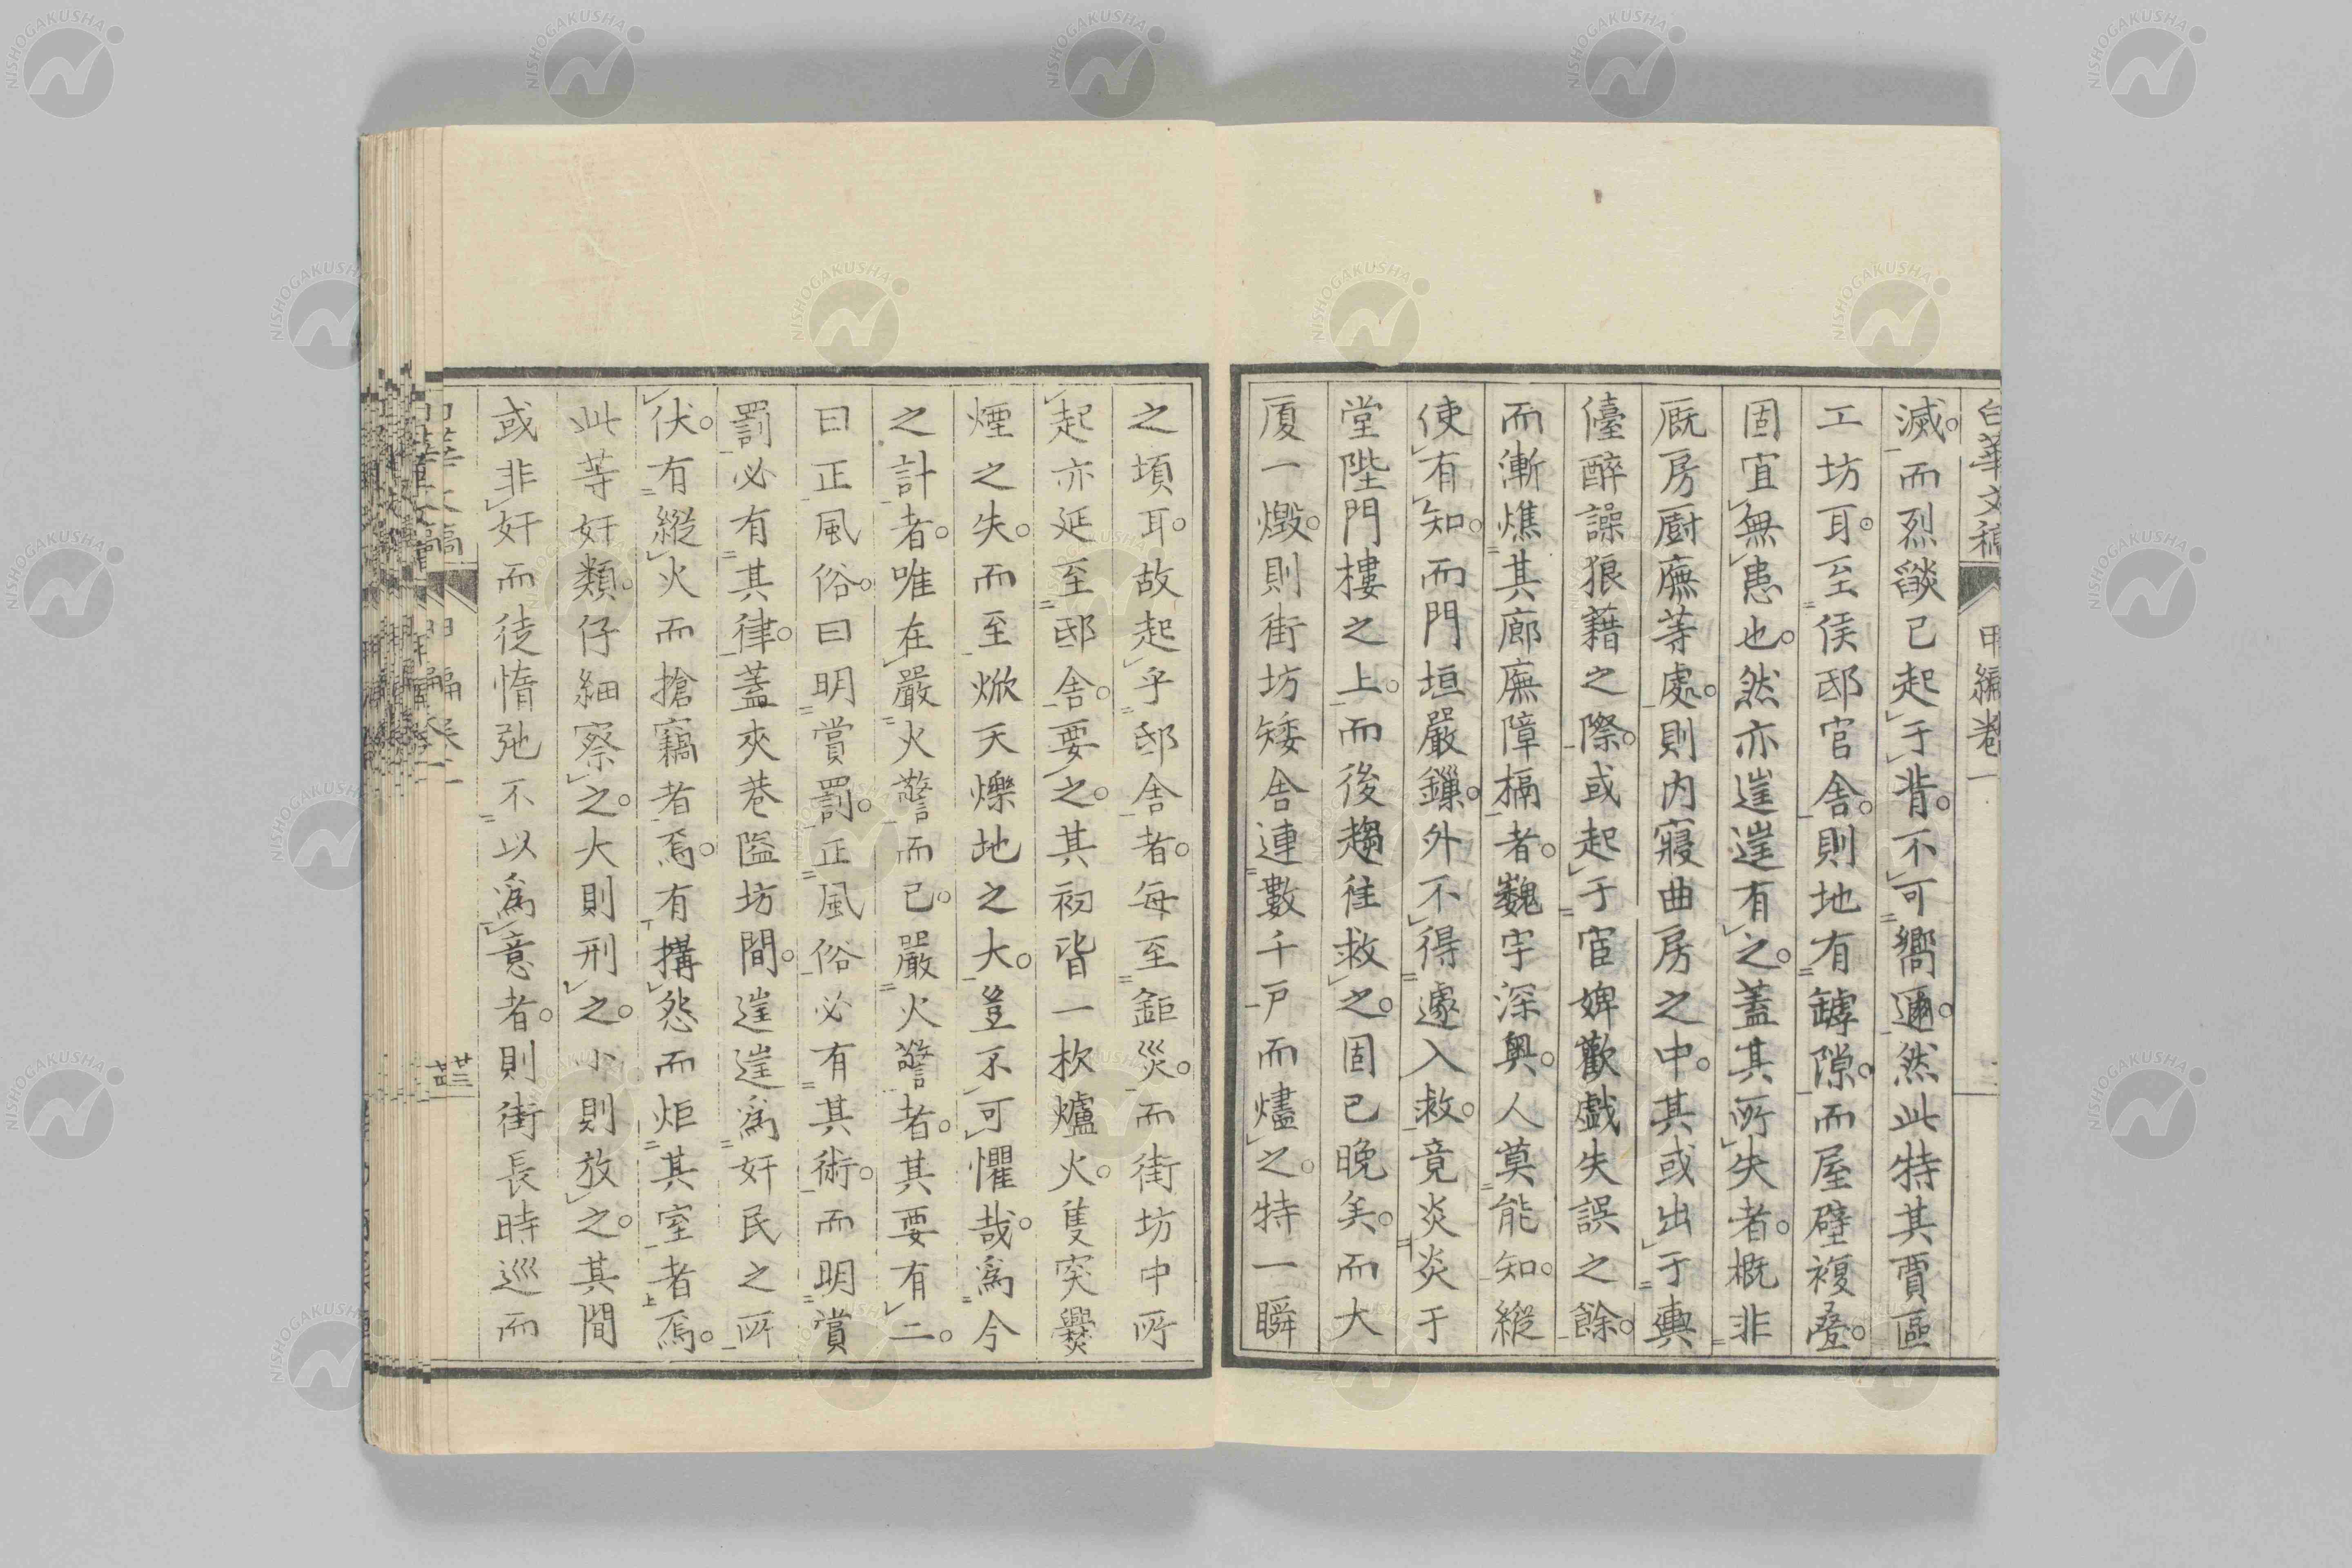 白華文稿 甲編卷一
滅。而烈燄已起于背。不可嚮邇。然此特其賈區
工坊耳。至侯邸官舍。則地有罅隙。而屋壁複疊。
固宜無患也。然亦往往有之。蓋其所失者。概非
厩房廚廡等處。則内寢曲房之中。其或出于輿
儓醉譟狼藉之際。或起于宦婢歡戯失誤之餘。
而漸燋其廊廡障槅者。巍宇深奥。人莫能知。縱
使有知。而門垣嚴鏁。外不得遽入救。竟炎炎于
堂陛門樓之上。而後趨往救之。固已晩矣。而大
厦一燬。則街坊矮舎連數千戸而燼之。特一瞬
之頃耳。故起乎邸舎者。每至鉅災。而街坊中所
起亦延至邸舎。要之。其初皆一杴爐火。隻突爨
煙之失。而至焮天爍地之大。豈不可懼哉。爲今
之計者。唯在嚴火警而已。嚴火警者。其要有二。
曰正風俗。曰明賞罰。正風俗必有其術。而明賞
罰必有其律。蓋夾巷隘坊間。往往爲奸民之所
伏。有縱火而搶竊者焉。有搆怨而炬其室者焉。
此等奸類。仔細察之。大則刑之。小則放之。其間
或非奸而徒惰弛不以爲意者。則街長時巡而
NISHOGAKUSHA